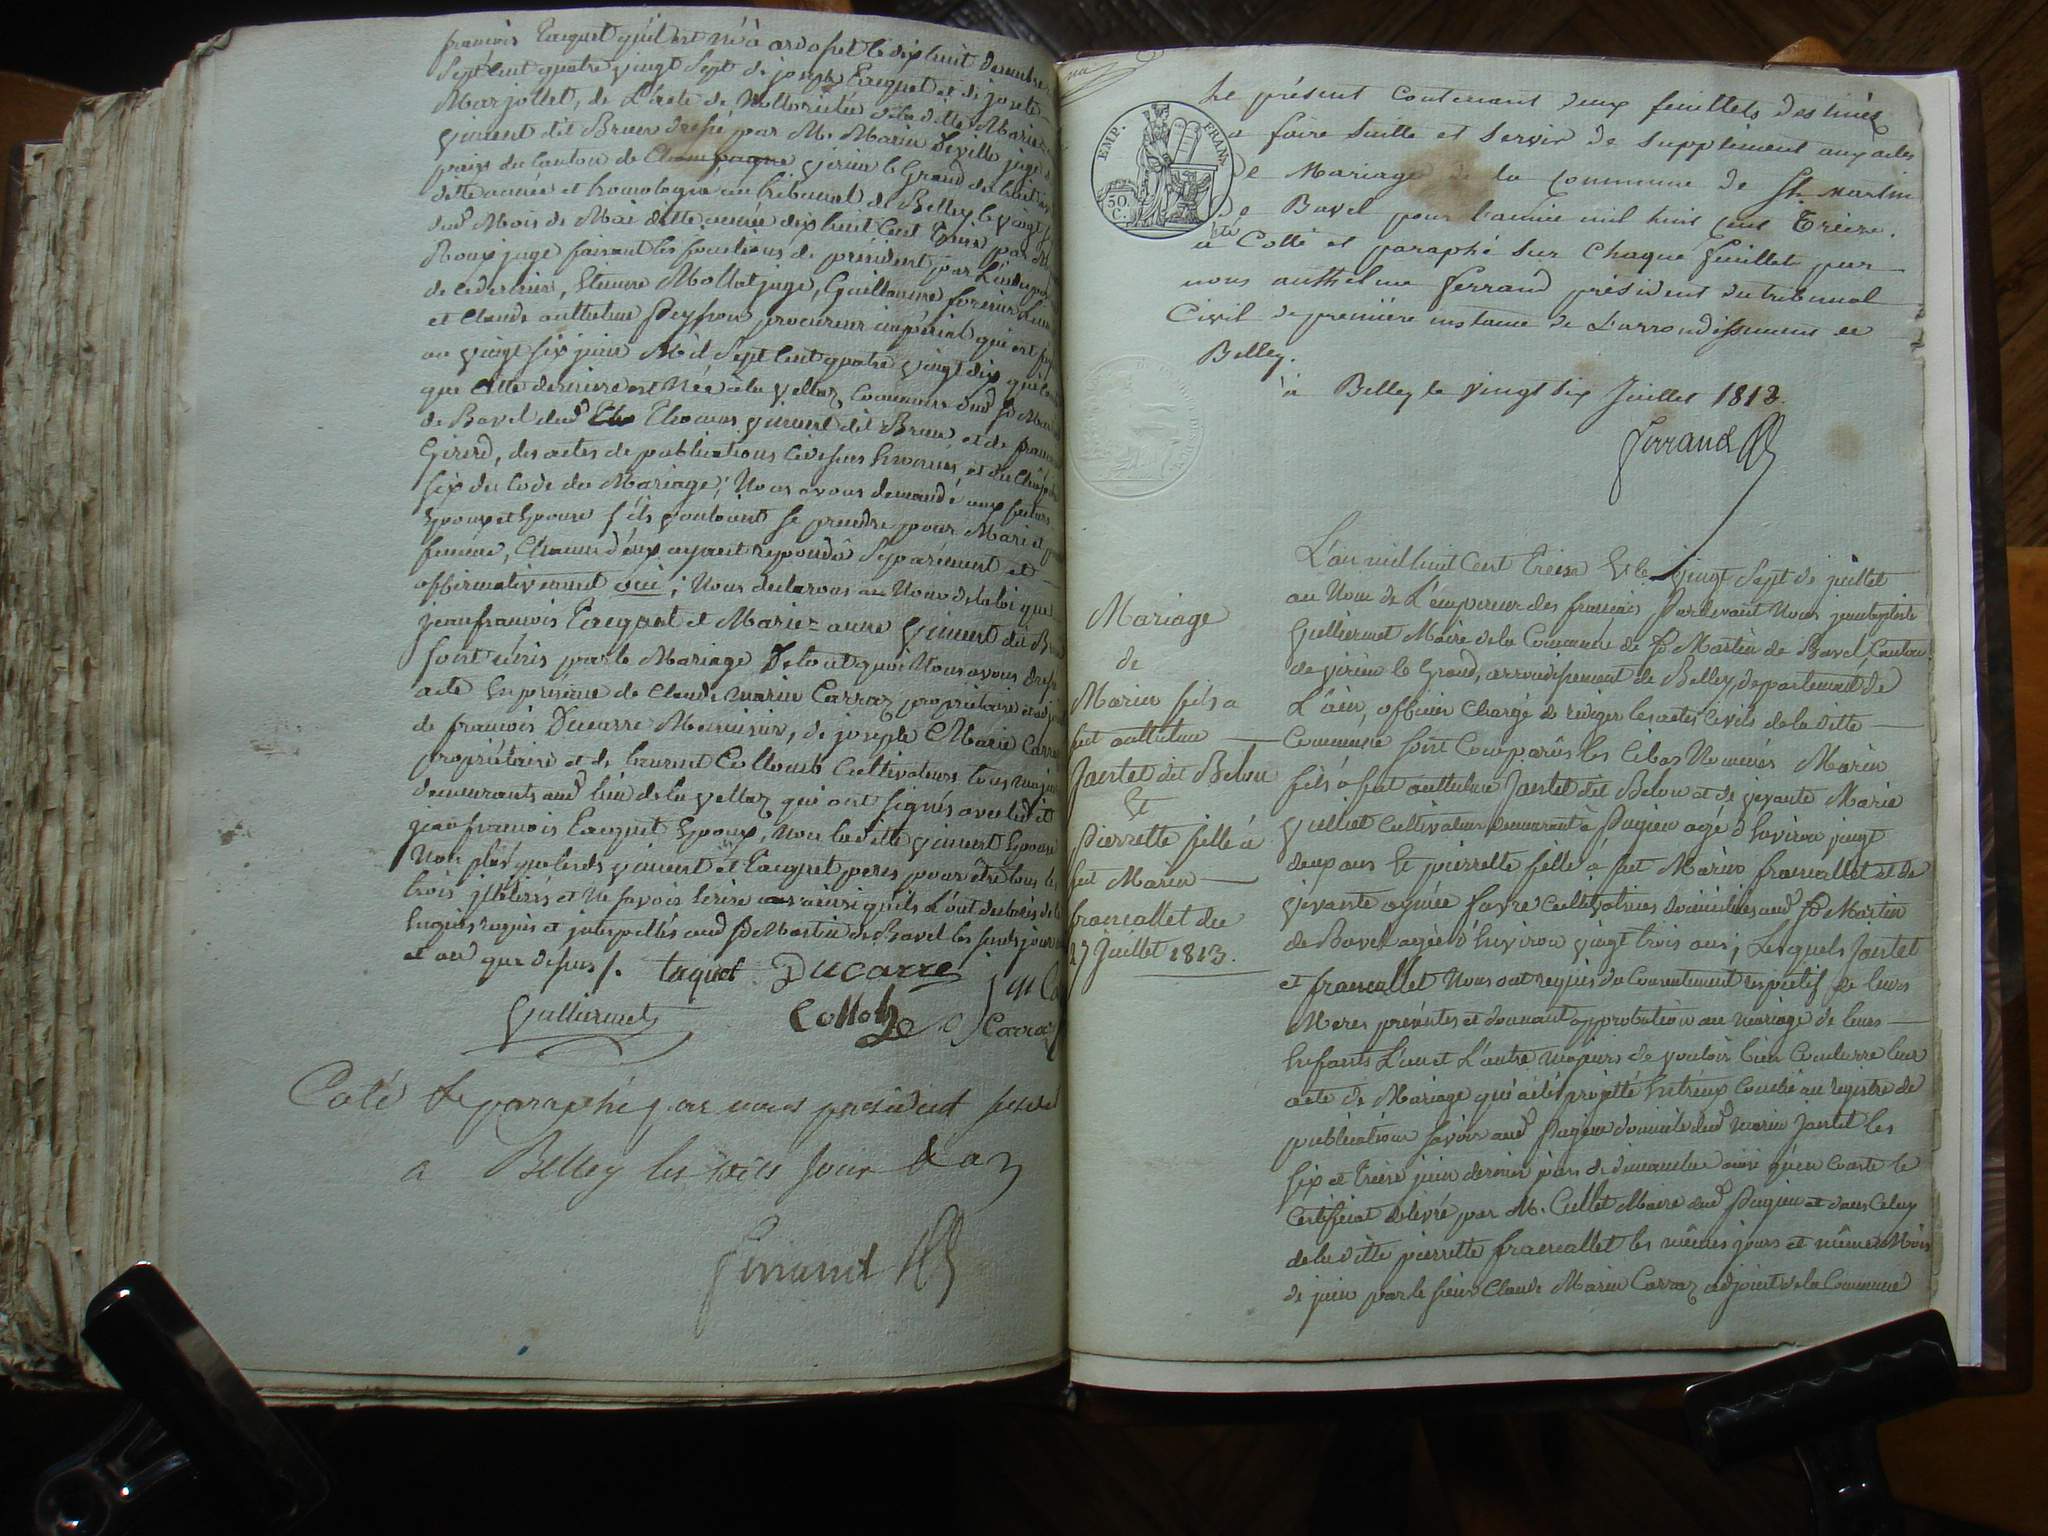 françois Taquet qu'il est né à ardosset le dix huit décembre
Sept Cent quatre vingt Sept de joseph Taquet et de josete
Marjollet, de L'acte de Nottoriétée de la ditte Marie
vincent dit Brun dressé par Mr. Marin Deville juge
paix du Canton de Champagne virieu le Grand du huit
ditte année et homologué au tribunal de Belley le vingt
dud. Mois de Mai ditte année dix huit Cent Treize par
Roux juge faisant les fonctions de président par L'indispo
de ce dernier, Etienne Mollat juge, Guillaume
et Claude anthelme Peysson procureur impérial qui
au vingt six juin Mil Sept Cent quatre vingt dix
que Cette dernière est Née à la Vellaz Commune dud. St. Ma
de Bavel dud. Thomas vincent dit Brun et de fran
Girerd, des actes de publications Ci dessus énoncés et du Chap
Six du Code du Mariage; Nous avons demandé aux futurs
Epoux et Epouse s'ils vouloient se prendre pour Mari et pour
femme, Chacun d'eux ayant répondu Séparément et
affirmativement oui; Nous déclarons au Nom de la loi que
jean françois Taquet et Marie=anne vincent dit B
sont unis par le Mariage De tout quoi Nous avons dressé
acte En présence de Claude Marin Carraz propriétaire et
de françois Ducarre Menuisier, de joseph Marie Carra
propriétaire et de Laurent Collomb Cultivateurs tous majeurs
demeurants aud. lieu de la Vellaz qui ont signés avec led. et
jean francois Taquet Epoux, Non la ditte vincent Epouse
Non plus que lesds. vincent et Taquet peres pour être tous les
trois illitérés et Ne savoir Ecrire ainsi qu'ils L'ont déclarés de
Enquis requis et interpellés aud. St. Martin de Bavel les susds. jour
et an que dessus /. taquet Ducarre j m Ca
Gulliermet Collomb C Carraz
Coté & paraphé par nous président susdit
a Belley les susdits Jour & an
Ferrand
EMP. FRANS.
50. C.
Le présent Contenant deux feuillets destinés
a faire Suitte et Servir de Supplément aux actes
de Mariage de la Commune de St. Martin
de Bavel pour l'année mil huit Cent Treize.
a été Cotté et paraphé Sur Chaque feuillet par
nous anthelme ferrand président du tribunal
Civil de première instance de L'arrondissement de
Belley.
à Belley le vingt six Juillet 1813.
Ferrand
Mariage
de
Marin fils a
feu anthelme
Jantet dit Belon
Et
Pierrette fille à
feu Marin
francallet du
27 Juillet 1813.
L'an mil huit Cent Treize & le vingt Sept de juillet
au Nom de L'empereur des français Par devant Nous jean baptiste
Gulliermet Maire de la Commune de St. Martin de Bavel, Canton
de virieu le Grand, arrondissement de Belley, département de
L'ain, officier Chargé de rédiger les actes Civils de la ditte
Commune sont Comparûs les Ci bas Nommés Marin
fils à feu anthelme Jantet dit Belon et de vivante Marie
Vulliet Cultivateur demeurant à Pugieu agé d'Environ vingt
deux ans Et pierrette fille à feu Marin francallet et de
vivante aymée favre Cultivatrices domiciliées aud. St. Martin
de Bavel agée d'Environ vingt trois ans; Lesquels Jantet
et francallet Nous ont requis du Consentement respectif de leurs
Meres présentes et donnant approbation au mariage de leurs
Enfants L'un et L'autre majeurs de vouloir bien Conclurre leur
acte de Mariage qui a été projetté Entreux Couché au registre de
publication savoir aud. Pugieu domicile dud. Marin Jantet les
Six et Treize juin dernier jours de dimanche ainsi qu'en Conste le
Certificat délivré par M. Cullet Maire dud. Pugieu et dans Celuy
de la ditte pierrette francallet les mêmes jours et même Mois
de juin par le sieur Claude Marin Carraz adjoint de la Commune